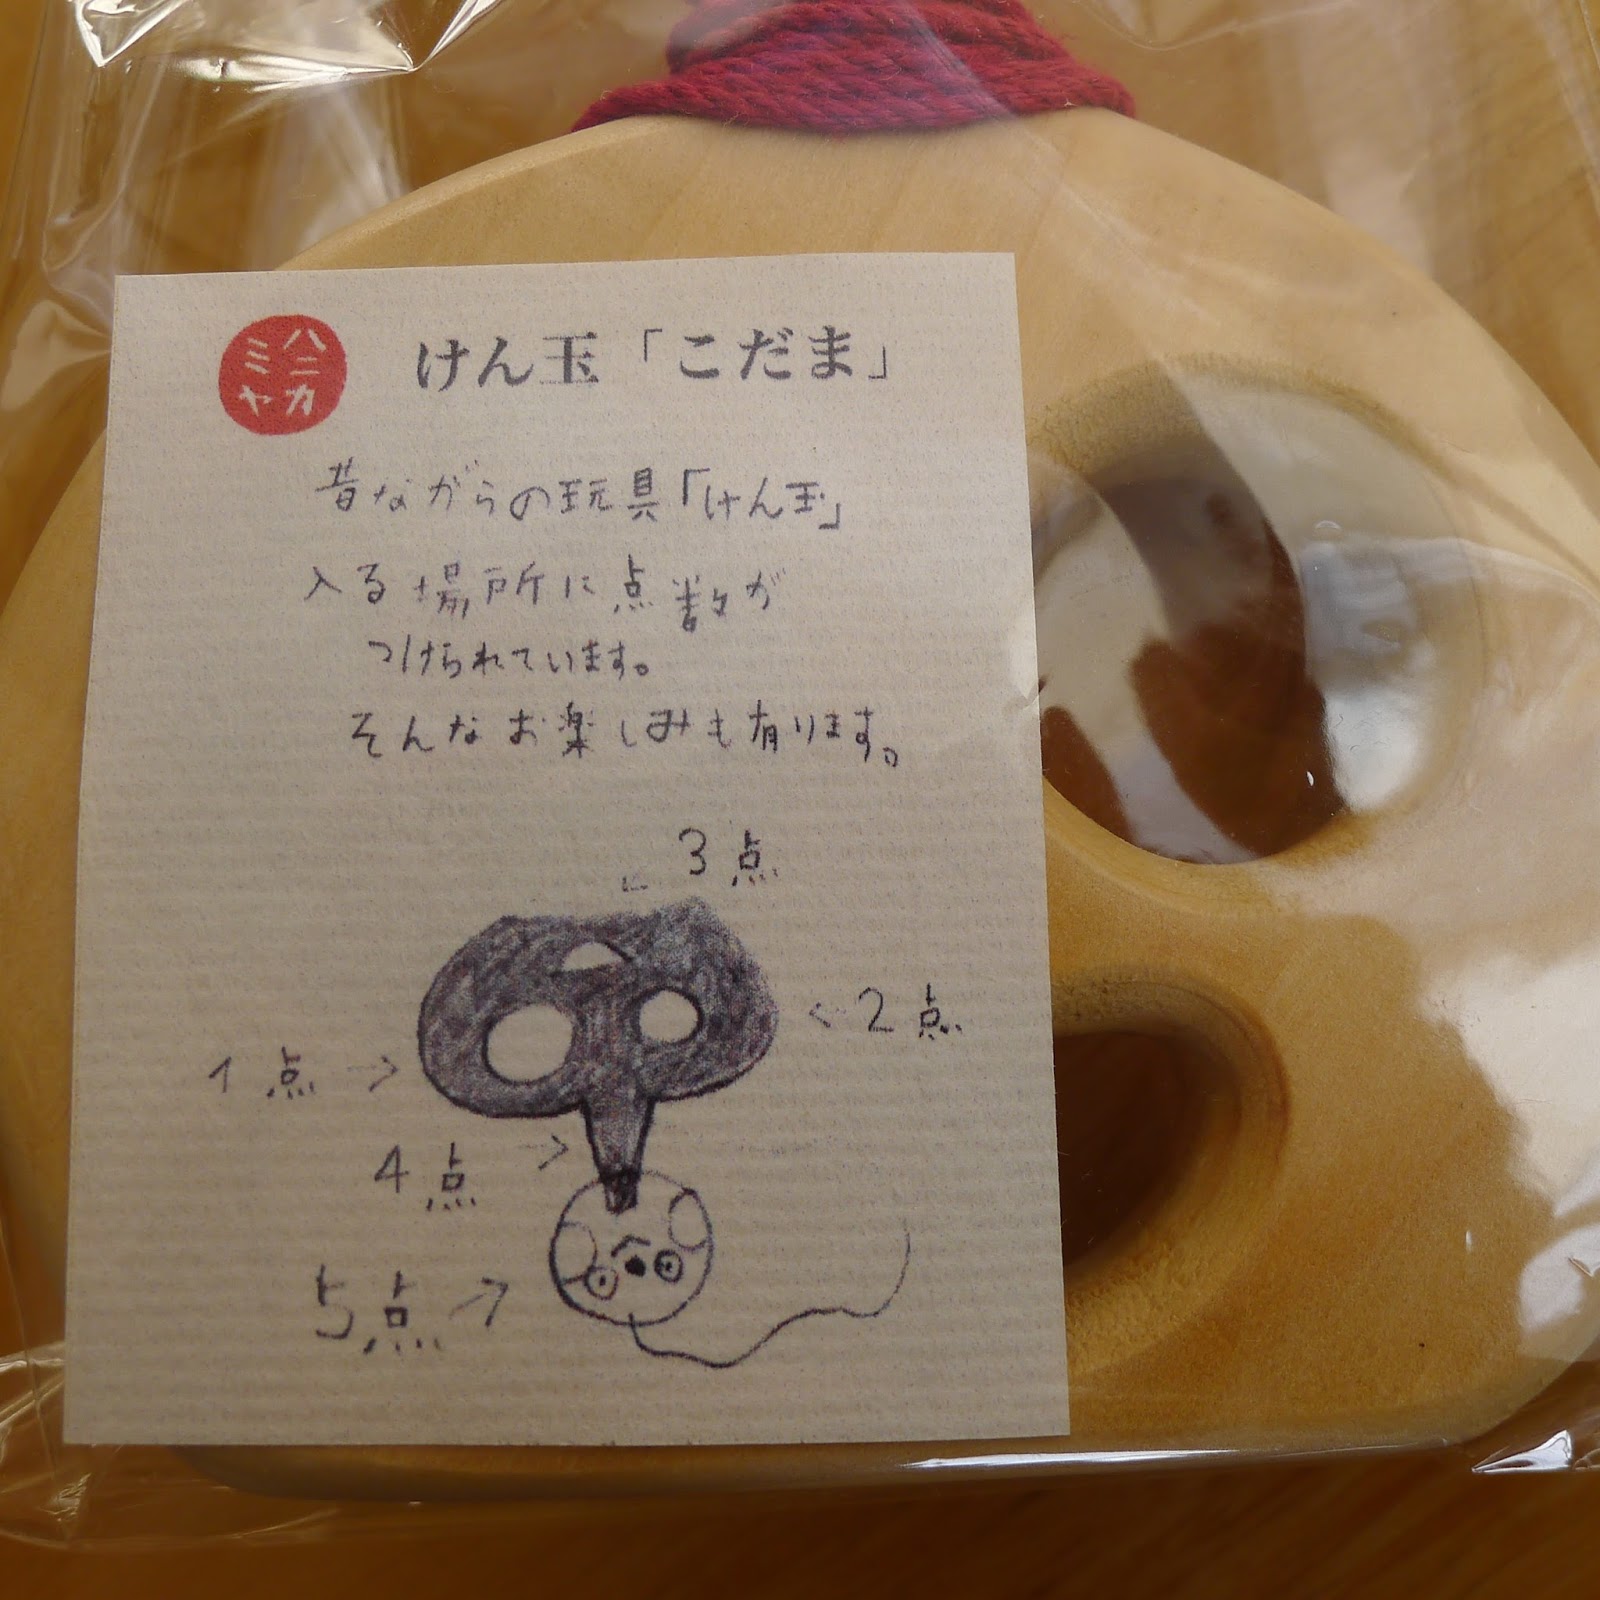 ハニカ
ミミヤ
けん玉「こだま」
昔ながらの玩具「けん玉」
入る場所に点数が
つけられています。
そんなお楽しみも有ります。
3点
2点
1点
4点
5点